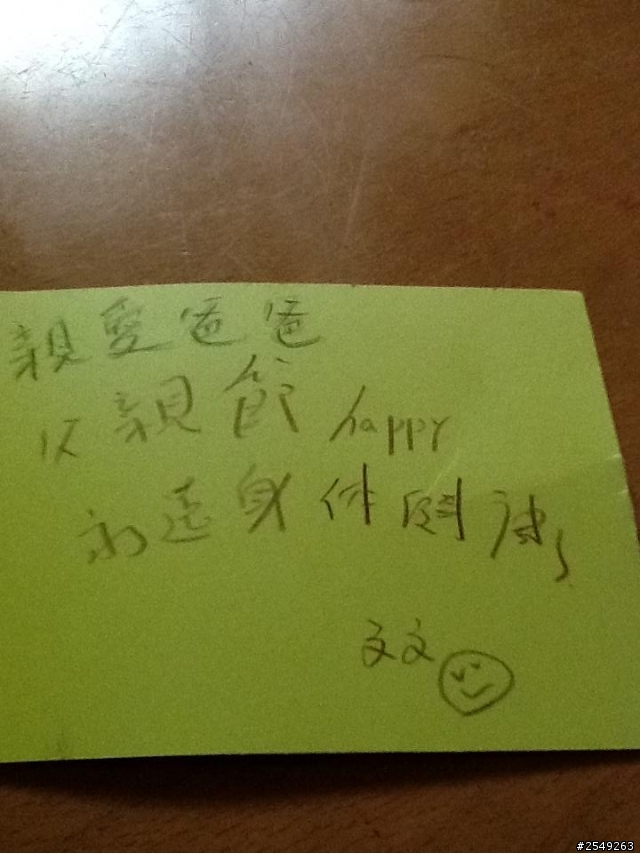 親愛爸爸
父親節 happy
永遠身体
文文
#2549263